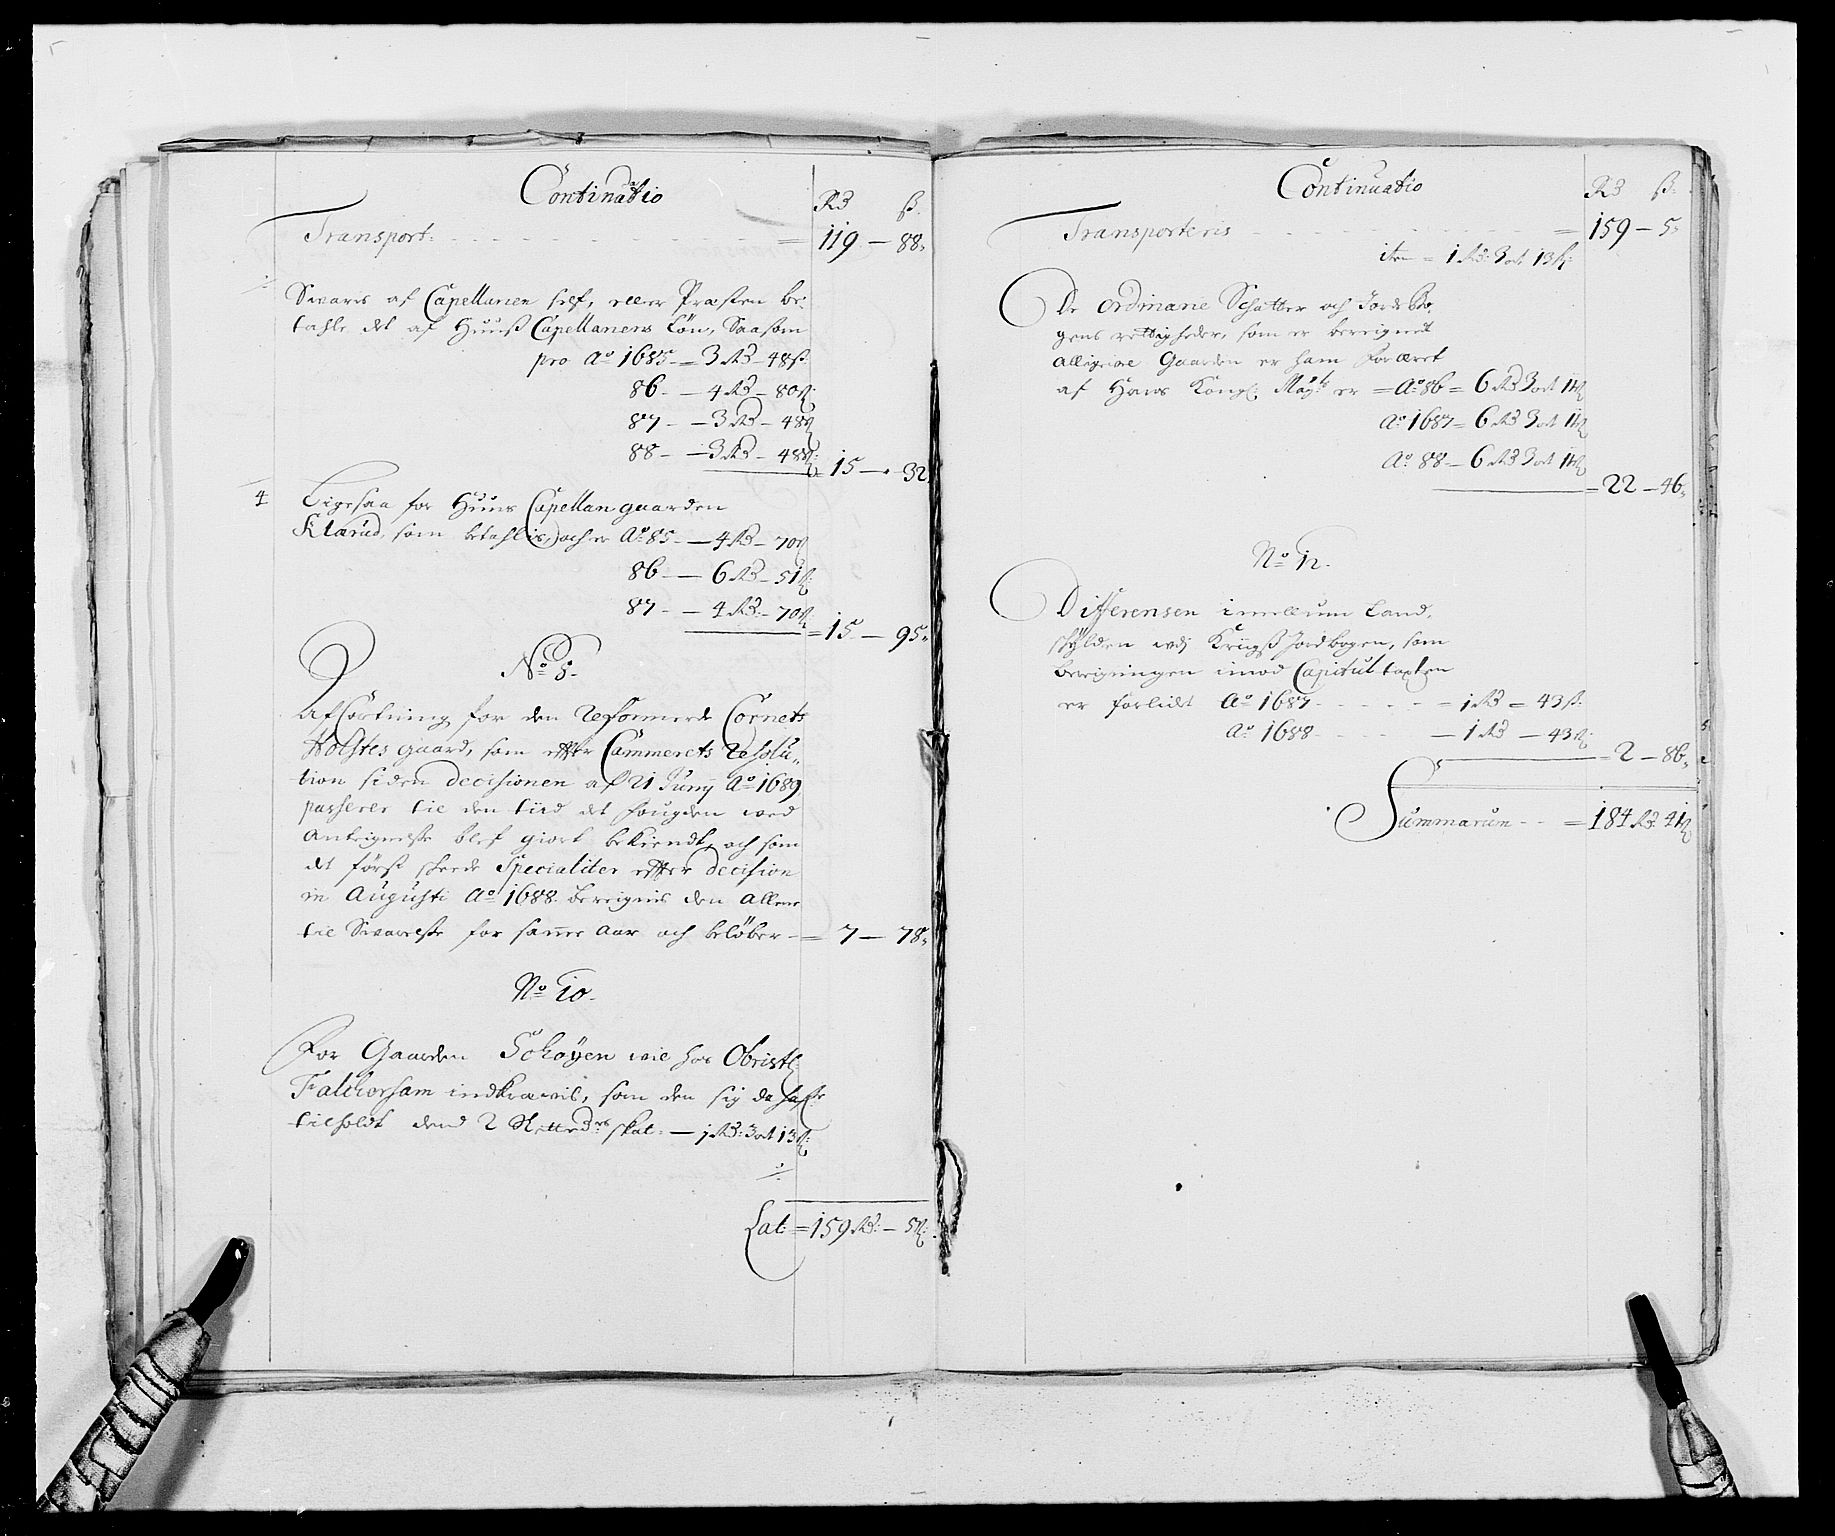 Continuatio
R3 ß.
Transport: = 119 — 88.
Svaris af Capellanen self, eller Præsten be-
tahle det af Hanß Capellanens Løn, Saasom
pro Ao 1685 = 3 R3 — 48 ß.
86 — 4 R3 — 80 ß
87 — 3 R3 — 48 ß
88 — 3 R3 — 48 ß
15 — 32
4 Ligesaa for Hans Capellan gaarden
Klarud, som betahlis, och er Ao 85 — 4 R3 — 70 ß
86 — 6 R3 — 51 ß
87 — 4 R3 — 70 ß
= 15 — 95.
No 8.
Afkortning for den Reformerte Cornets
Holstes gaard, som effter Cammerets Resolu-
tion siden decisionen af 21 Junij Ao 1689
passerer til den tiid det fougden ved
Antegnelse blef giort bekiendt, och som
det først skeede Specialiter effter decision
in Augusti Ao 1688. beregnis den allene
til Svarelse for samme Aar och beløber — = 7 — 78.
No 10.
For Gaarden Schøyen vil hos Obristl:
Falchersam indkrævis, som den sig da hafr
tilholdt dend 2 skat — 1 R3: 3 ort 13 ß
Lat: = 159 R3: — 5 ß
Continuatio
R3 ß.
Transporteris = 159 — 5.
iten = 1 R3: 3 ort 13 ß:
De ordinarie Schatter och Jorde Bo-
gens rettigheder, som er beregnet
Gaarden er ham foræret
af Hans Kongl: Mayts er = Ao 86 = 6 R3 3 ort 11 ß
Ao 1687 = 6 R3 3 ort 11 ß
Ao 88 — 6 R3 3 ort 11 ß
= 22 — 46.
No 12.
Differensen imellum Land-
schylden udj Krigß Jordbogen, som
beregningen imod Capitul taxten
er forlidt Ao 1687 = 1 R3 = 43 ß.
Ao 1688 — 1 R3 — 43 ß
= 2 — 86.
Summarum = 184 R3 41 ß